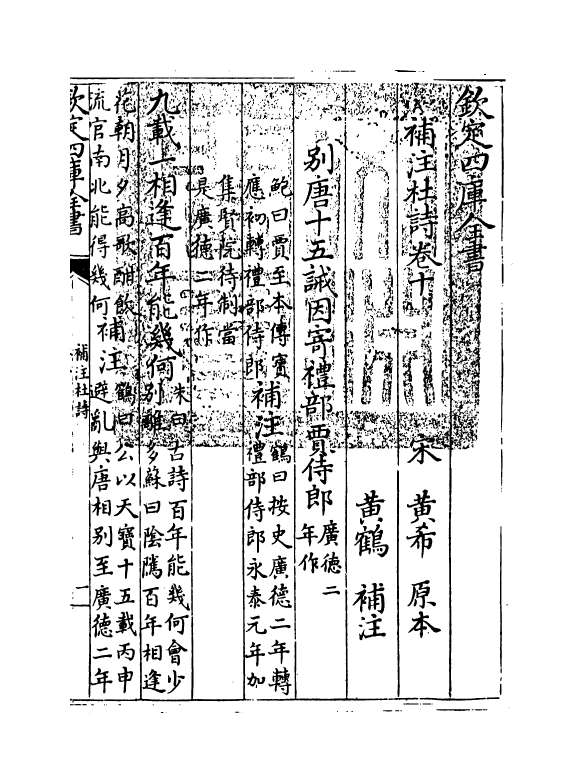 欽定四庫全書
補注杜詩卷十　宋　黃希　原本
黃鶴　補注
別唐十五誡因寄禮部賈侍郎
廣德二
年作
鮑曰賈至本傳寶
應初轉禮部侍郎
補注
鶴曰按史廣德二年轉
禮部侍郎永泰元年加
集賢院待制當
是廣德二年作
九載一相逢百年能幾何
朱曰古詩百年能幾何會少
別離多蘇曰陰隲百年相逢
花朝月夕高歌酣飲
流官南北能得幾何
補注
鶴曰公以天寶十五載丙申
避亂與唐相別至廣德二年
欽定四庫全書
補注杜詩
一